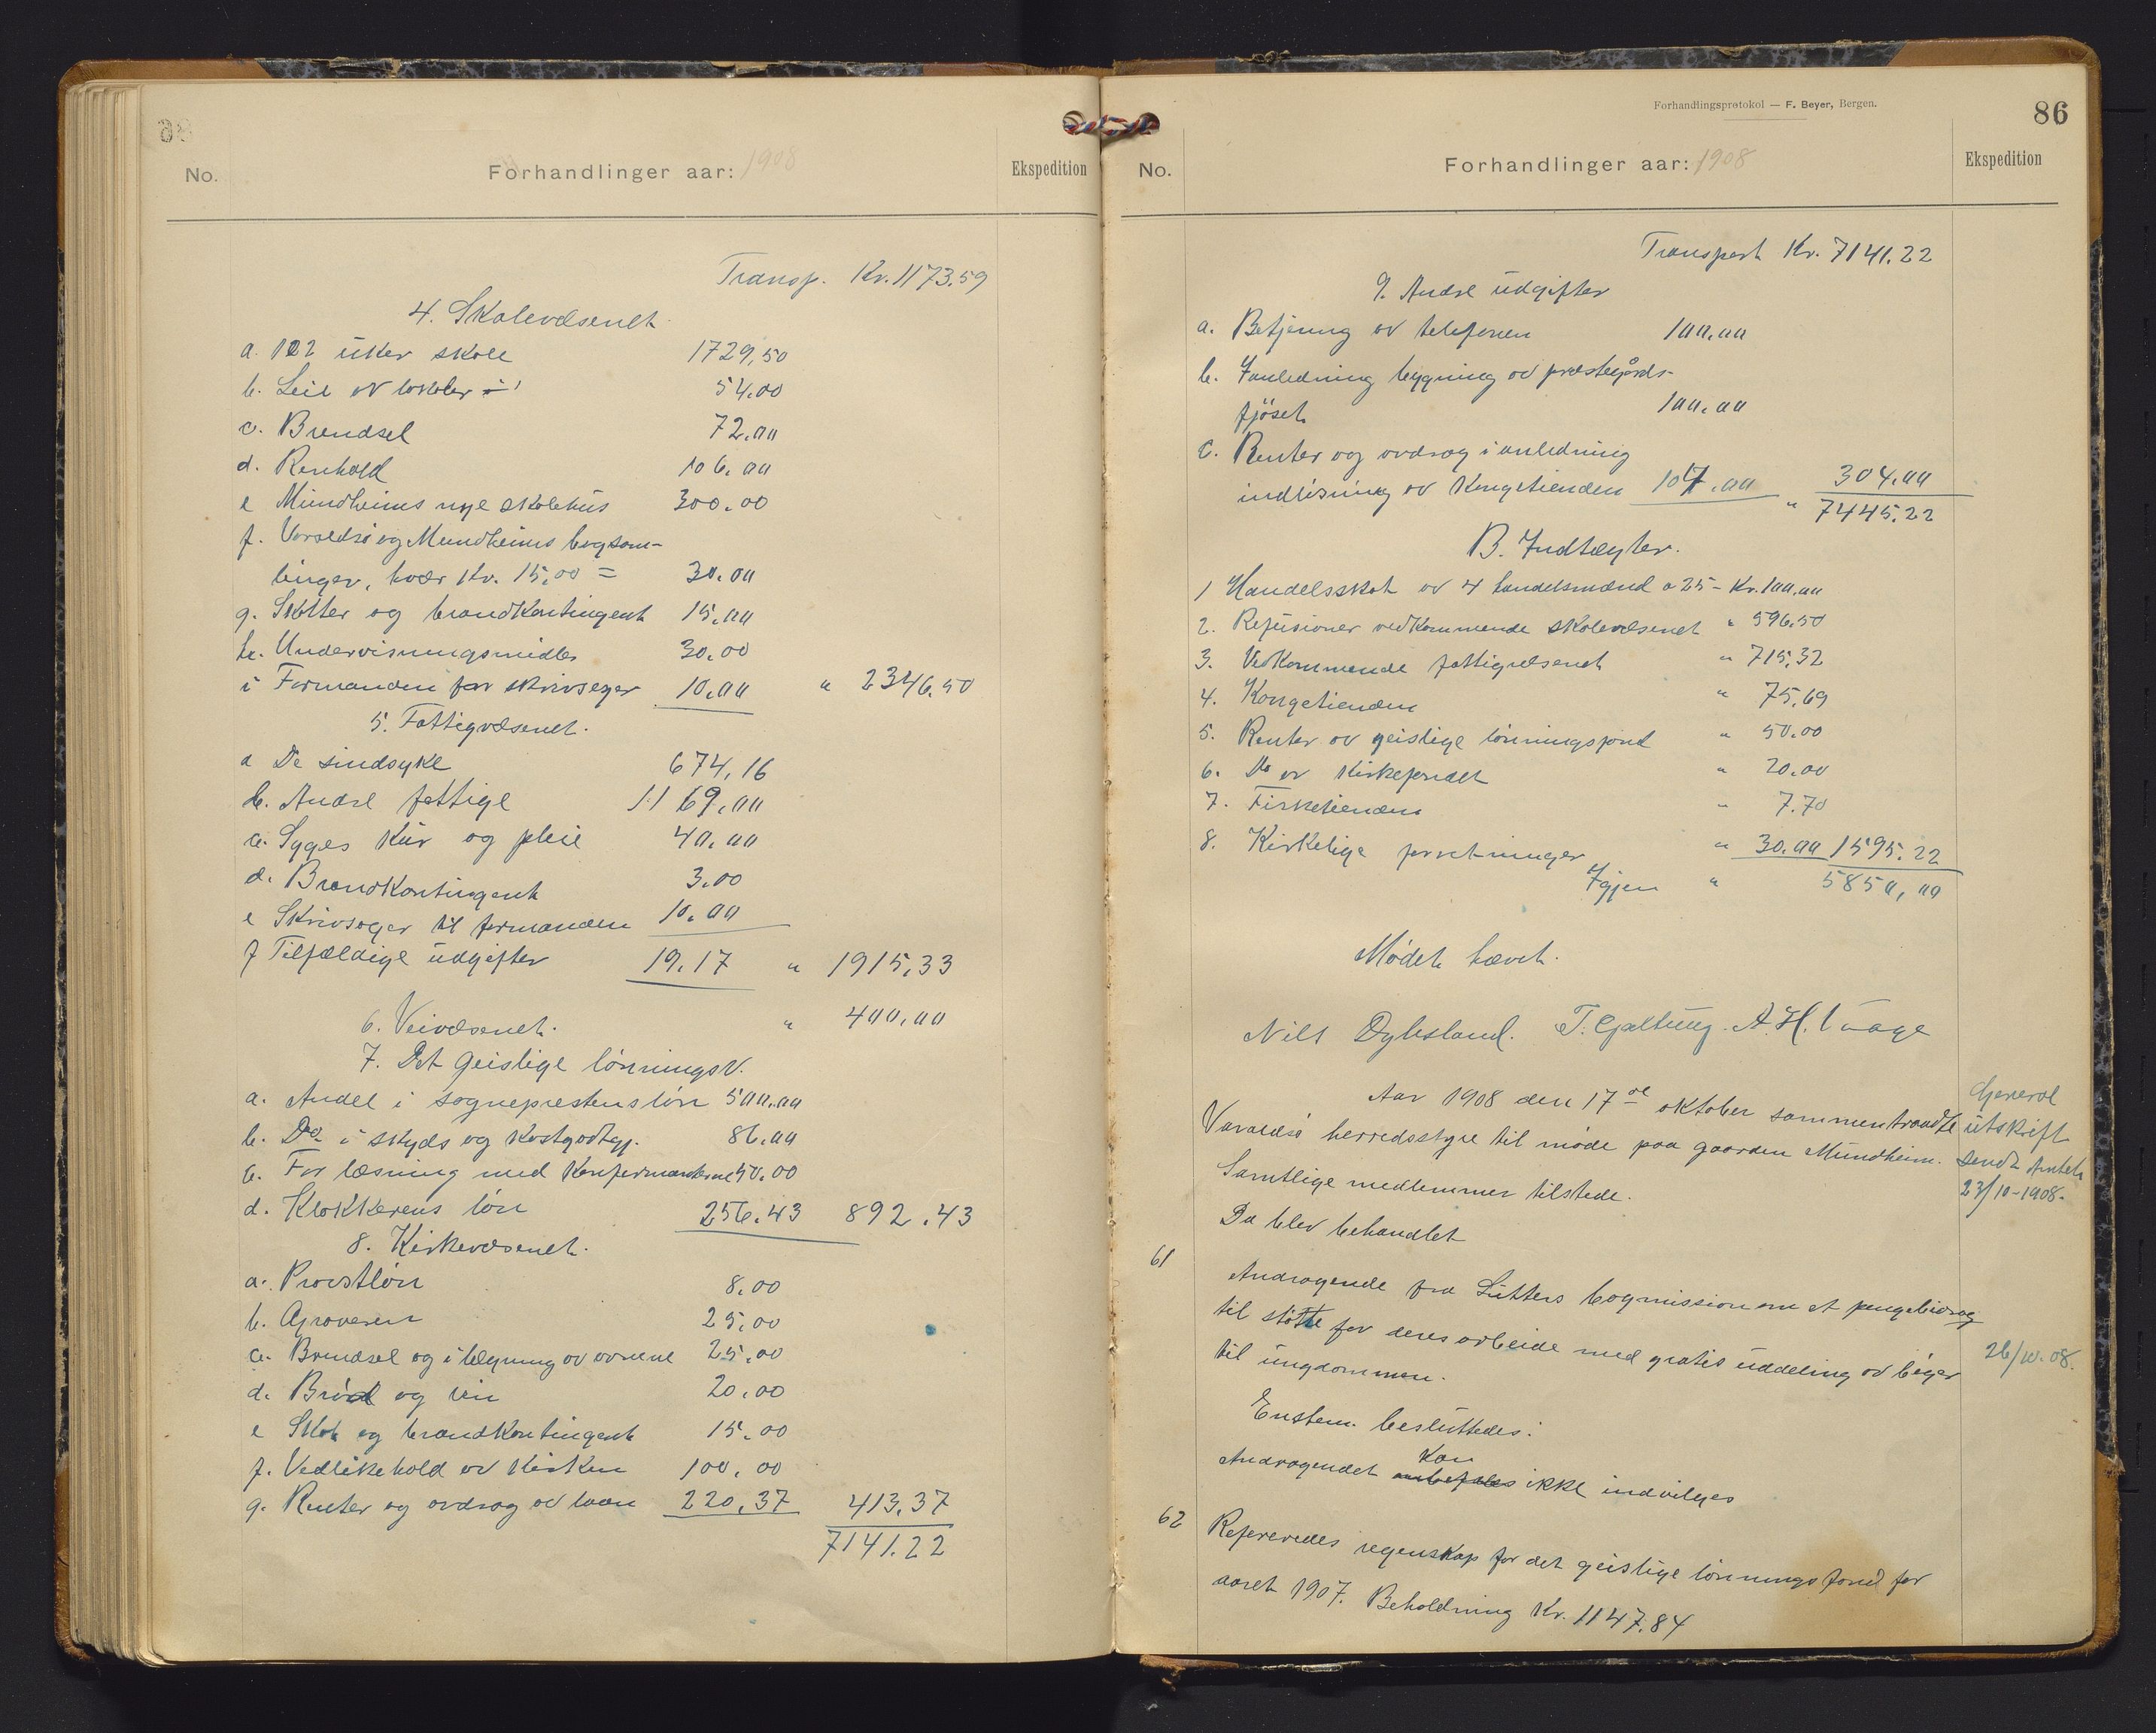 No.
Forhandlinger aar: 1908
Ekspedition
Transp. Kr. 1173.59
4. Skolevæsenet
a. 122 uker skole 1729,50
b. Leie av lokaler 54.00
c. Brændsel 72.00
d. Renhold 106.00
e Mundheims nye skolehus 300.00
f. Varaldsø og Mundheims bogsam-
linger, hver Kr. 15,00 = 30.00
g. Skatter og brandkontingent 15.00
h. Undervisningsmidler 30.00
i Formanden for skrivsager 10.00 " 2346.50
5. Fattigvæsenet.
a De sindsyke 674,16
b. Andre fattige 1169.00
c. Syges kur og pleie 40.00
d. Brandkontingent 3.00
e Skrivsager til formanden 10.00
f Tilfældige udgifter 19.17 " 1915,33
6. Veivæsenet. " 400.00
7. Det geislige lønningsv.
a. Andel i sogneprestens løn 500.00
b. Do i skyds og kostgodtgj. 86.00
c. For læsning med konfirmanterne 50.00
d. Klokkerens løn 256.43 892.43
8. Kirkevæsenet.
a. Provstløn 8.00
b. Graveren 25.00
c. Brændsel og i lægning av ovnene 25.00
d. Brød og vin 20.00
e Skat og brandkontingent 15.00
f. Vedlikehold av kirken 100.00
g. Renter og avdrag av laan 220,37 413.37
7141.22
Forhandlingsprotokol — F. Beyer, Bergen.
86
No.
Forhandlinger aar: 1908
Ekspedition
Transport Kr. 7141.22
9. Andre udgifter
a. Betjening av telefonen 100.00
b. I anledning bygning av præstegårds-
fjøset 100.00
c. Renter og avdrag i anledning
indløsning av Kongetienden 104.00 304.00
" 7445.22
B. Indtægter.
1 Handelsskat av 4 handelsmænd a 25 - Kr. 100.00
2. Refusioner vedkommende skolevæsenet " 596.50
3. Vedkommende fattigvæsenet " 715,32
4. Kongetienden " 75,69
5. Renter av geislige lønningsfond " 50.00
6. Do av Kirkefondet " 20.00
7. Fisketienden " 7.70
8. Kirkelige forretninger " 30.00 1595.22
Igjen " 5850,00
Mødet hævet.
Nils Dyhesland. T. Galtung. A. H. Vaage
Aar 1908 den 17de oktober sammentraadte
Varaldsø herredsstyre til møde paa gaarden Mundheim.
Samtlige medlemmer tilstede.
General
utskrift
sendt Amtet
23/10-1908.
Da blev behandlet
61
Andragende fra Luthers bogmission om et pengebidrag
til støtte for deres arbeide med gratis uddeling av bøger
til ungdommen.
26/10.08.
Enstem. besluttedes:
kan
Andragendet anbefales ikke indvilges
62
Refereredes regenskap for det geislige lønningsfond for
aaret 1907. Beholdning Kr. 1147.84